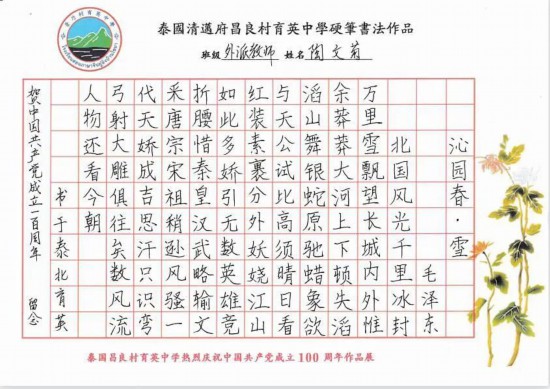 泰國清邁府昌良村育英中學硬筆書法作品
班級 外派教师 姓名 陶文菊
沁园春·雪
毛泽东
北国风光千里冰封
万里雪飘望长城内外惟
余莽莽大河上下顿失滔
滔山舞银蛇原驰蜡象欲
与天公试比高须晴日看
红装素裹分外妖娆江山
如此多娇引无数英雄竞
折腰惜秦皇汉武略输文
采唐宗宋祖稍逊风骚一
代天娇成吉思汗只识弯
弓射大雕俱往矣数风流
人物还看今朝
书于泰北育英
贺中国共产党成立一百周年 留念
泰國昌良村育英中学热烈庆祝中国共产党成立100周年作品展